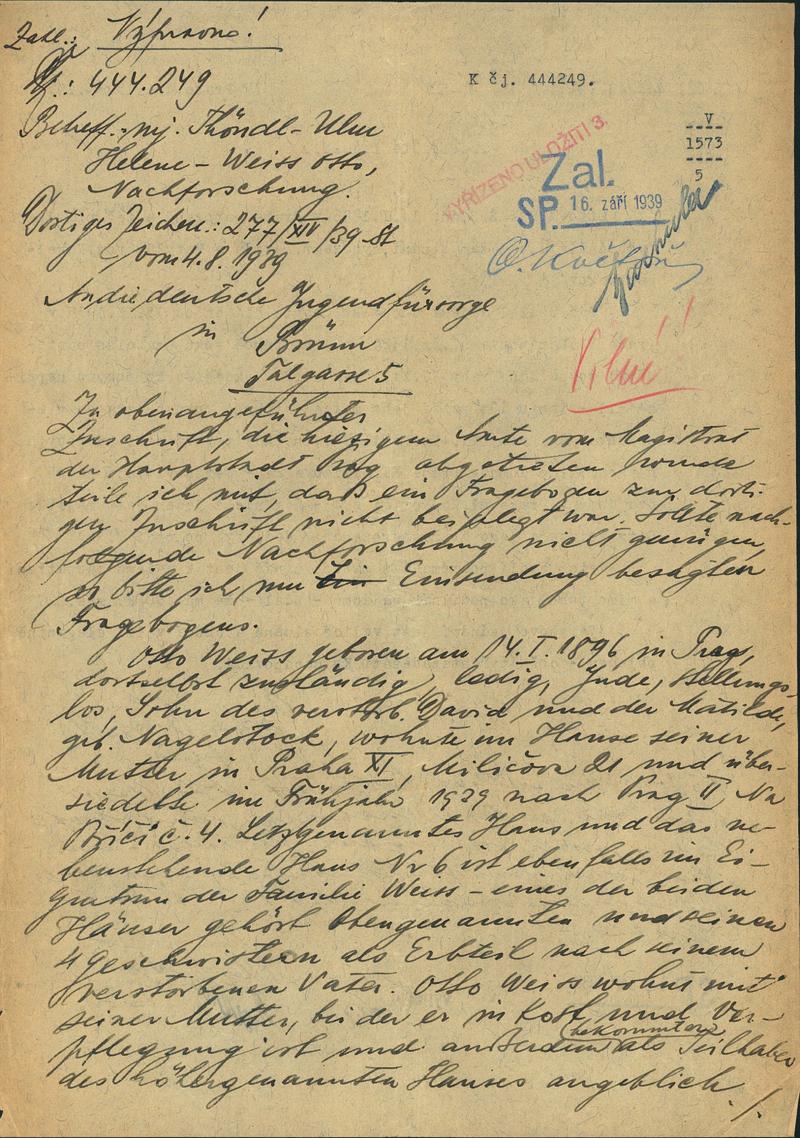 Výpravno!
Zn.: 444.249
K čj. 444249.
Betreff.: mj. Thöndl-Ulm
Helene - Weiss Otto,
Nachforschung.
V
1573
5
VYŘÍZENO ULOŽITI 3.
Zal.
SP. 16. září 1939
Dortiges Zeichen.: 277/XIV/39-St
vom 4.8.1939
An die deutsche Jugendfürsorge
in Brünn
Talgasse 5
Zu obenangeführter
Zuschrift, die hiesigem Amte vom Magistrat
der Hauptstadt Prag abgetreten wurde
teile ich mit, daß ein Fragebogen zur dorti-
gen Zuschrift nicht beigelegt war. Sollte nach-
folgende Nachforschung nicht genügen,
so bitte ich um Einsendung besagten
Fragebogens.
Otto Weiss geboren am 14.I.1896 in Prag,
dortselbst zuständig, ledig, Jude, stellungs-
los, Sohn des verstorb. David und der Matilde,
geb. Nagelstock, wohnte im Hause seiner
Mutter in Praha XI, Milíčova 21 und über-
siedelte im Frühjahr 1939 nach Prag II, Na
Poříčí č. 4. Letztgenanntes Haus und das ne-
benstehende Haus Nr 6 ist ebenfalls im Ei-
gentum der Familie Weiss - eines der beiden
Häuser gehört Obengenannten und seinen
4 Geschwistern als Erbteil nach seinem
verstorbenen Vater. Otto Weiss wohnt mit
seiner Mutter, bei der er in Kost und Ver-
pflegung ist und außerdem bekommt er als Teilhaber
des höhergenannten Hauses angeblich
./.